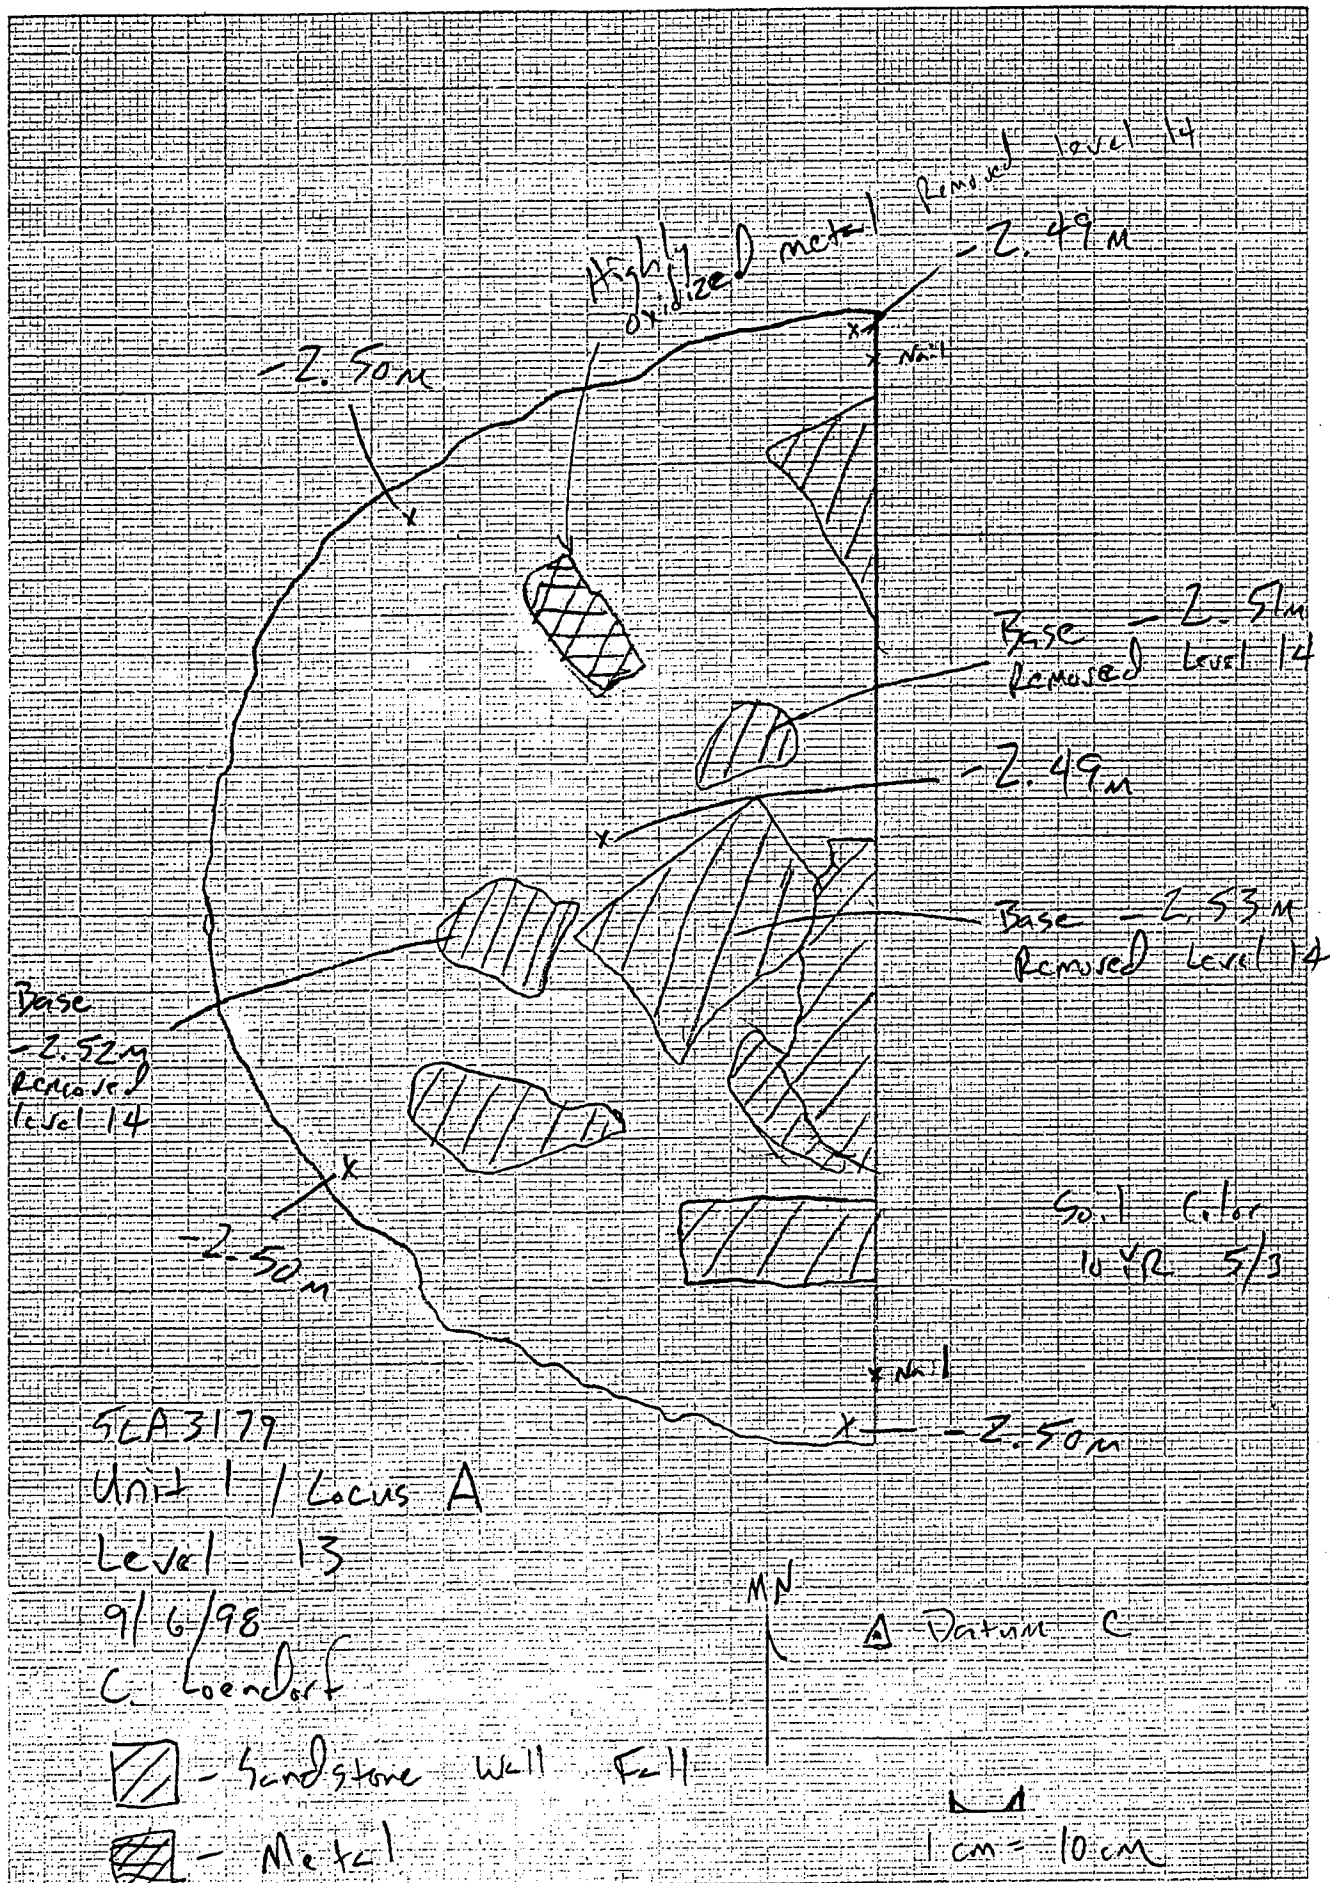 Removed level 14
-2.49 m
Highly
oxidized metal
Nail
-2.50 m
Base -2.51m
Removed Level 14
-2.49 m
Base -2.53 m
Removed Level 14
Base
-2.52 m
Removed
level 14
-2.50 m
Soil Color
10 YR 5/3
Nail
-2.50 m
5LA3179
Unit 1 / Locus A
Level 13
9/6/98
C. Loendorf
MN
Datum C
- Sandstone Wall Fall
- Metal
1 cm = 10 cm